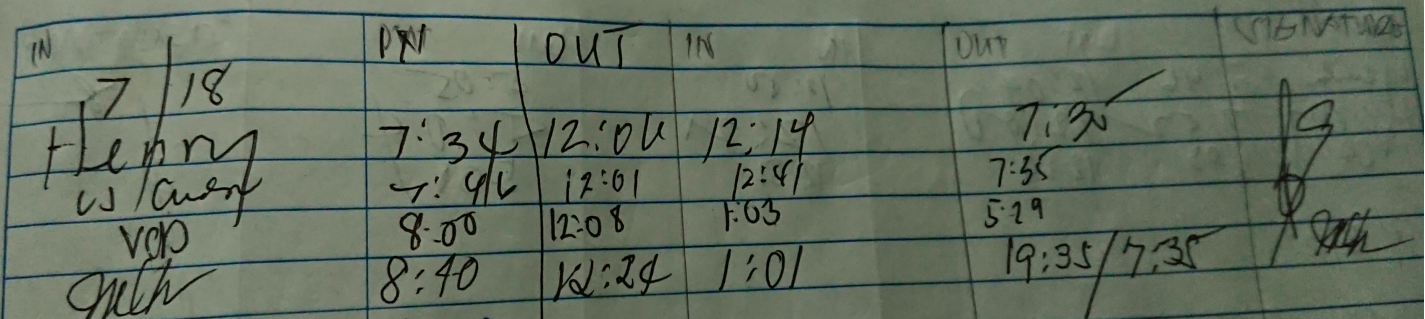 IN IN OUT IN OUT SIGNATURE
7/18
Henry 7:34 12:04 12:14 7:35
12:01 12:41 7:35
8:00 12:08 1:03 5:29
8:40 12:24 1:01 19:35/7:35